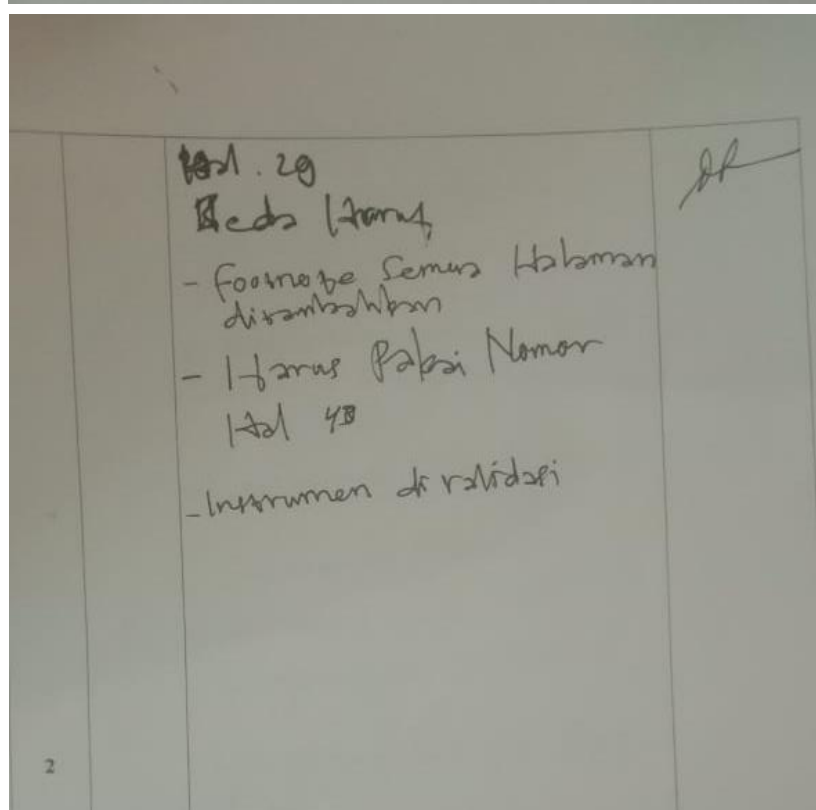 Hal. 29
Beda Huruf,
- Footnote Semua Halaman
ditambahkan
- Harus Pakai Nomor
Hal 43
- Instrumen di validasi
2